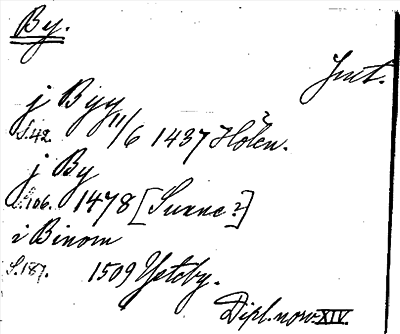 By.
Jmt.
j Byy
S.42. 11/6 1437 Hólen.
j By
S.106. 1478 [Sunne?]
i Binom
S.187. 1509 Ysteby.
Dipl. norv. XIV.